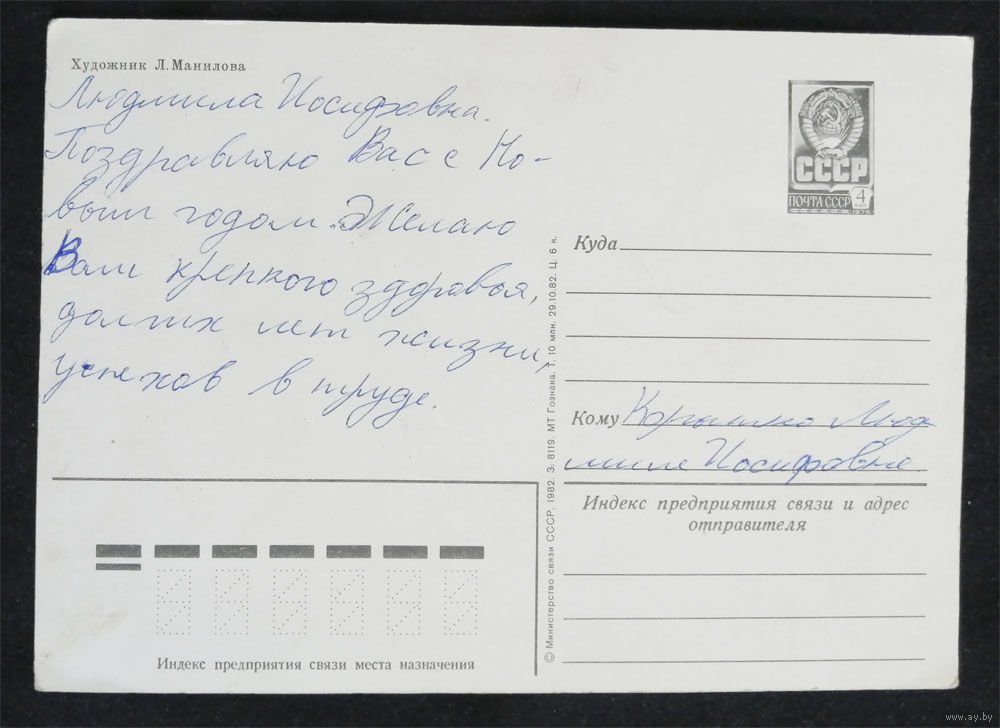 Художник Л. Манилова
Людмила Иосифовна.
Поздравляю Вас с Но-
вым годом. Желаю
Вам крепкого здоровья,
долгих лет жизни,
успехов в труде.
СССР
ПОЧТА СССР 4 КОП
1976
Куда
Кому Люд
миле Иосифовне.
Индекс предприятия связи и адрес
отправителя
© Министерство связи СССР, 1982. З. 8119. МТ Гознака. Т. 10 млн. 29.10.82. Ц. 6 к.
Индекс предприятия связи места назначения
www.ay.by